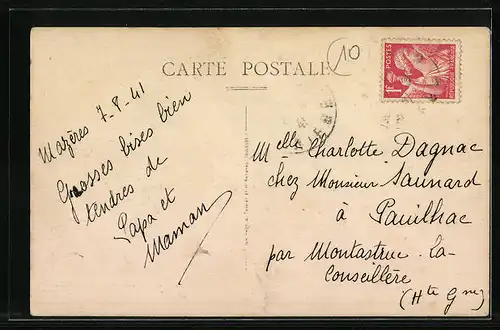 10
CARTE POSTALE
POSTES
1F
Mazères 7-8-41
Grosses bises bien
tendres de
Papa et
Maman
Melle Charlotte Dagnac
chez Monsieur Saunard
à Pauilhac
par Montastruc-la-
Conseillère
(Hte Gne)